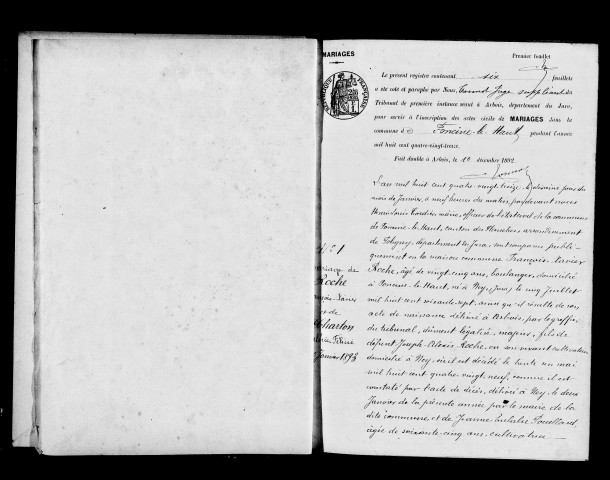 MARIAGES
Premier feuillet
Le présent registre contenant six feuillets
a été coté et paraphé par Nous, Second Juge suppléant du
Tribunal de première instance séant à Arbois, département du Jura,
pour servir à l'inscription des actes civils de MARIAGES dans la
commune de Foncine-le-Haut, pendant l'année
mil huit cent quatre-vingt-treize.
Fait double à Arbois, le 10 décembre 1892
L'an mil huit cent quatre-vingt-treize, le douzième jour du
mois de Janvier, à neuf heures du matin, par devant nous
Cordier, maire, officier de l'état civil de la commune
de Foncine-le-Haut, canton des Planches, arrondissement
de Poligny, département du Jura, ont comparu publi-
quement en la maison commune François-Xavier
Roche, âgé de vingt-cinq ans, boulanger, domicilié
à Foncine-le-Haut, né à Ney, (Jura) le cinq Juillet
mil huit cent soixante-sept, ainsi qu'il résulte de son
acte de naissance délivré à Arbois, par le greffier
du tribunal, dûment légalisé, majeur, fils de
défunt Joseph-Alexis Roche, en son vivant cultivateur
domicilié à Ney, où il est décédé le trente un mai
mil huit cent quatre-vingt-neuf, comme il est
constaté par l'acte de décès, délivré à Ney le deux
Janvier de la présente année par le maire de la
dite commune, et de Jeanne
âgée de soixante-cinq ans, cultivatrice
N° 1
mariage de
Roche
Xavier
de
Charton
Janvier 1893